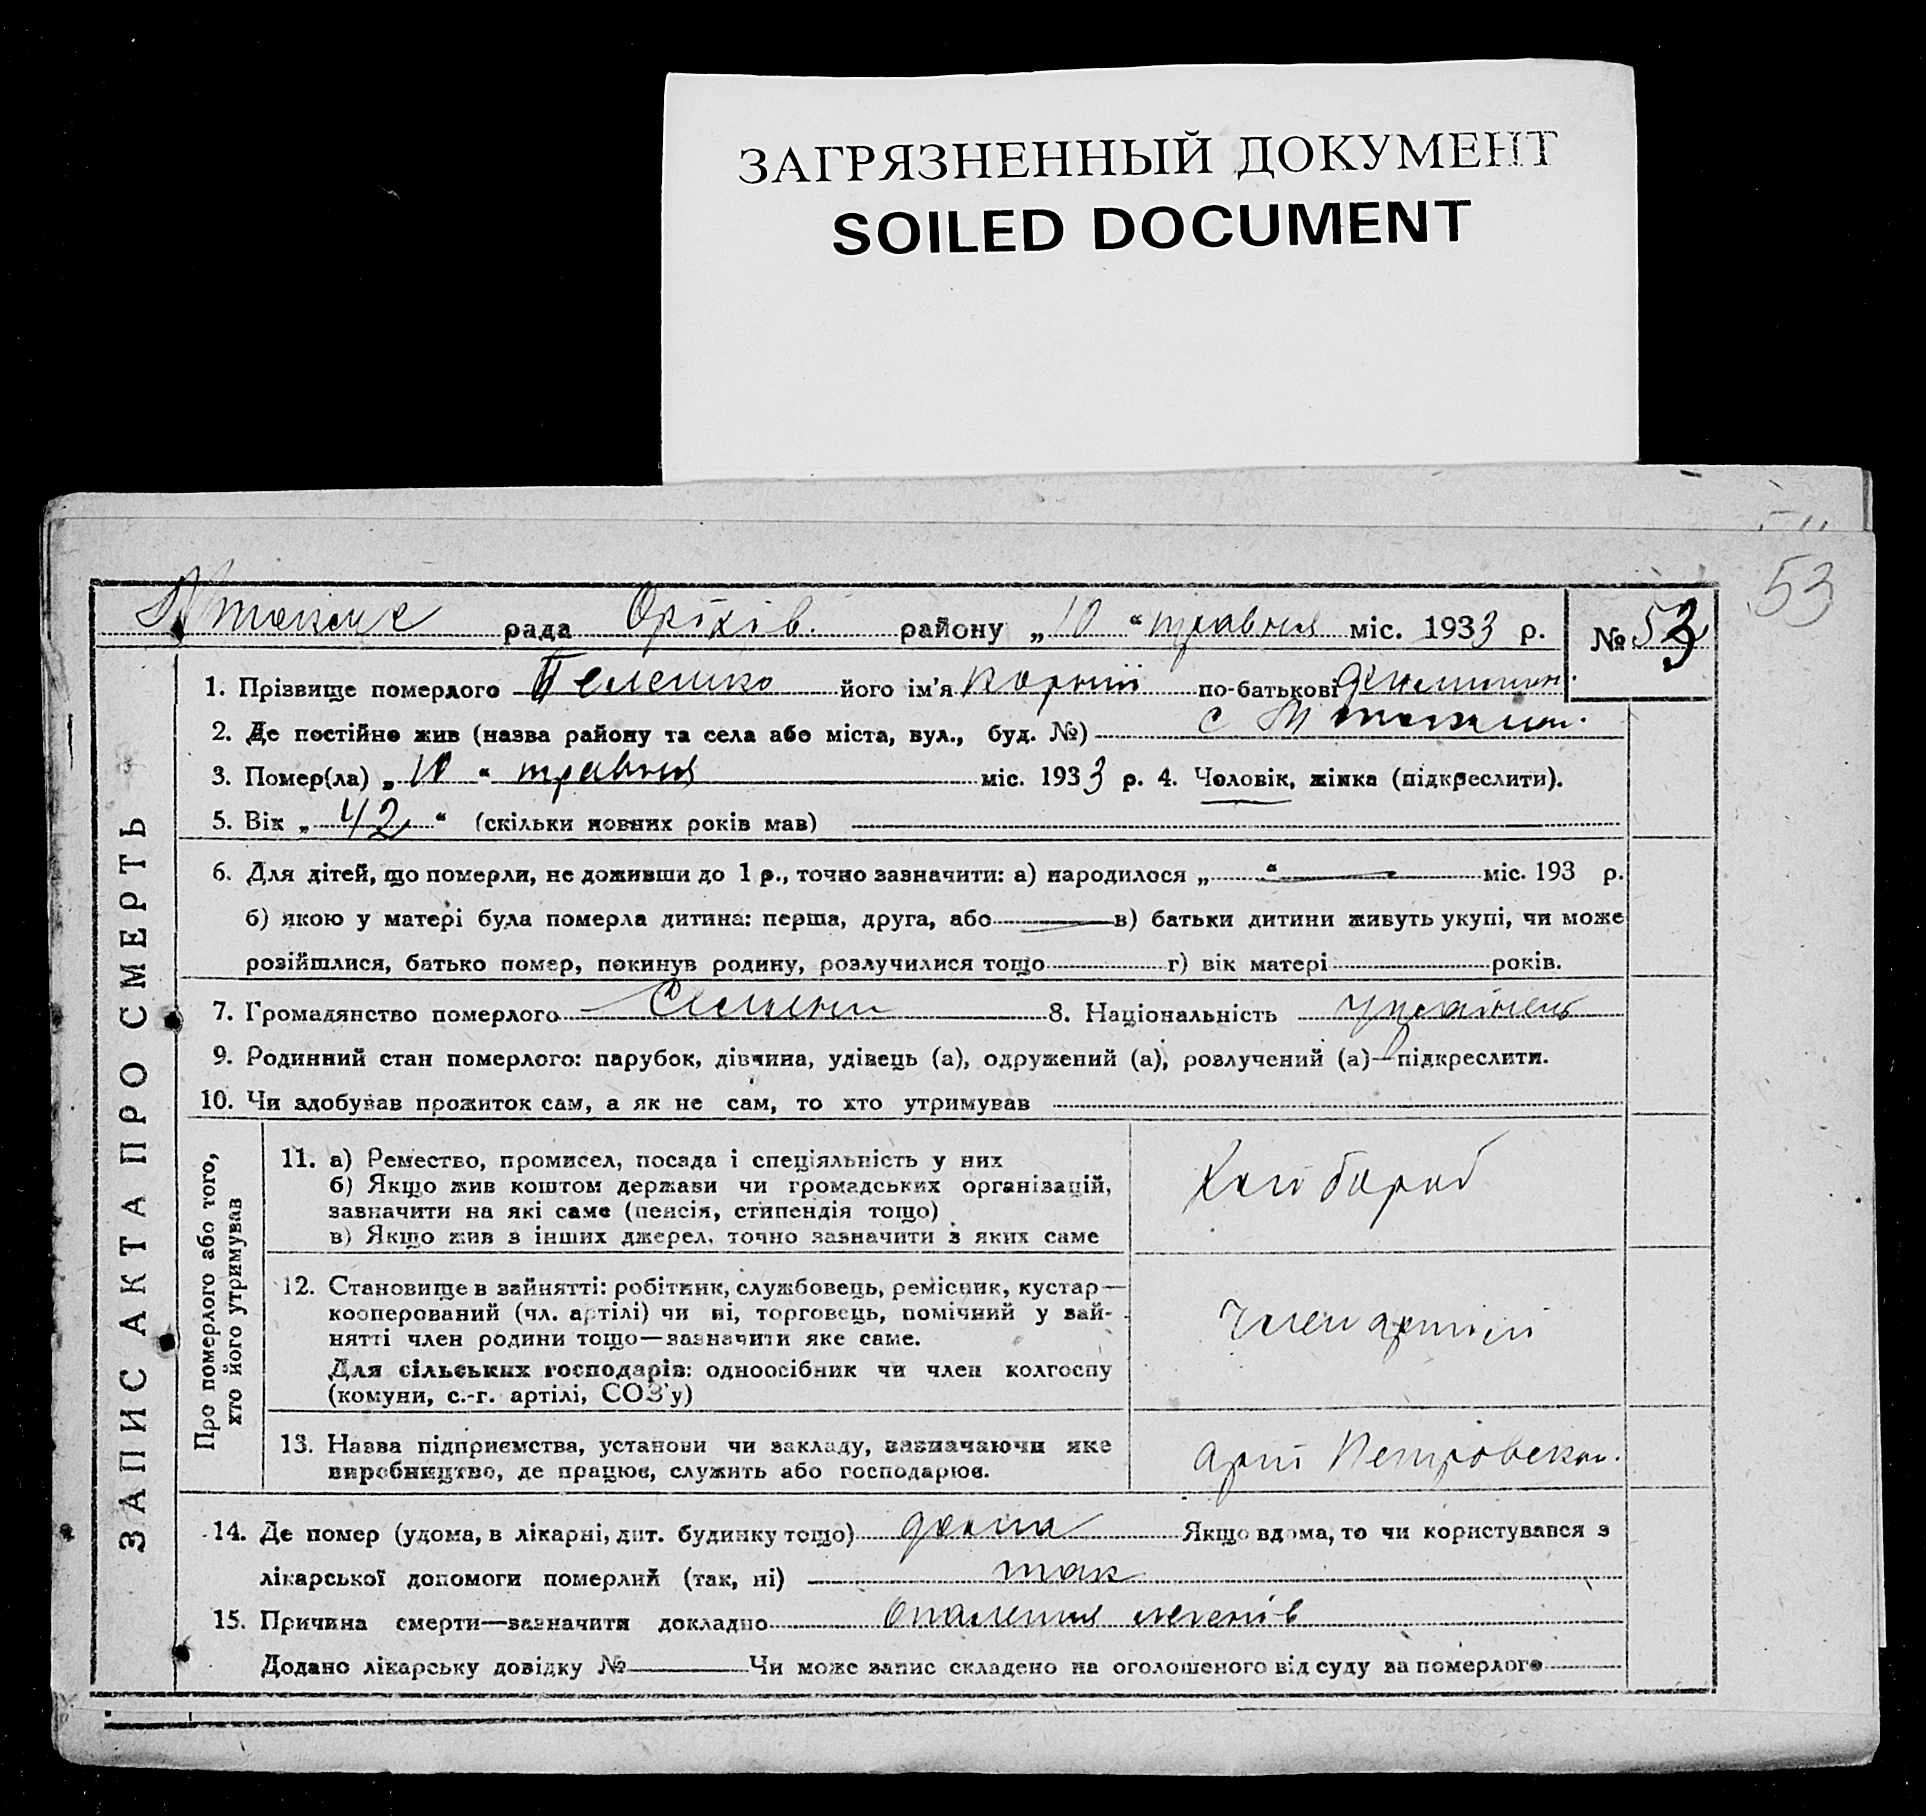 ЗАГРЯЗНЕННЫЙ ДОКУМЕНТ
SOILED DOCUMENT
53
рада Оріхів. району „10“ травня міс. 1933 р. № 53
ЗАПИС АКТА ПРО СМЕРТЬ
1. Прізвище померлого його ім'я Корній по-батькові
2. Де постійно жив (назва району та села або міста, вул., буд. №) с
3. Помер(ла) „10“ травня міс. 1933 р. 4. Чоловік, жінка (підкреслити).
5. Вік „42“ (скільки повних років мав)
6. Для дітей, що померли, не доживши до 1 р., точно зазначити: а) народилося „ “ міс. 193 р.
б) якою у матері була померла дитина: перша, друга, або в) батьки дитини живуть укупі, чи може
розійшлися, батько помер, покинув родину, розлучилися тощо г) вік матері років.
7. Громадянство померлого 8. Національність українець
9. Родинний стан померлого: парубок, дівчина, удівець (а), одружений (а), розлучений (а)—підкреслити.
10. Чи здобував прожиток сам, а як не сам, то хто утримував
Про померлого або того,
хто його утримував
11. а) Ремество, промисел, посада і спеціяльність у них
б) Якщо жив коштом держави чи громадських організацій,
зазначити на які саме (пенсія, стипендія тощо)
в) Якщо жив з інших джерел, точно зазначити з яких саме
Хлібороб
12. Становище в зайнятті: робітник, службовець, ремісник, кустар—
кооперований (чл. артілі) чи ні, торговець, помічний у зай-
нятті член родини тощо—зазначити яке саме.
Для сільських господарів: одноосібник чи член колгоспу
(комуни, с.-г. артілі, СОЗ'у)
Член артілі
13. Назва підприємства, установи чи закладу, зазначаючи яке
виробництво, де працює, служить або господарює.
арт Петровськ.
14. Де помер (удома, в лікарні, дит. будинку тощо) дома Якщо вдома, то чи користувався з
лікарської допомоги померлий (так, ні) так
15. Причина смерти—зазначити докладно опалення легенів
Додано лікарську довідку № Чи може запис складено на оголошеного від суду за померлого